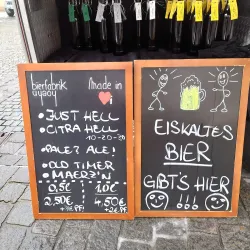 bierfabrik
Made in
• JUST HELL
• CITRA HELL
10-20-30
• PALE? ALE!
• OLD TIMER
• MAERZ'N
0,5L 1,0L
2,50€ 4,50€
EISKALTES
BIER
GIBT'S HIER
!!!